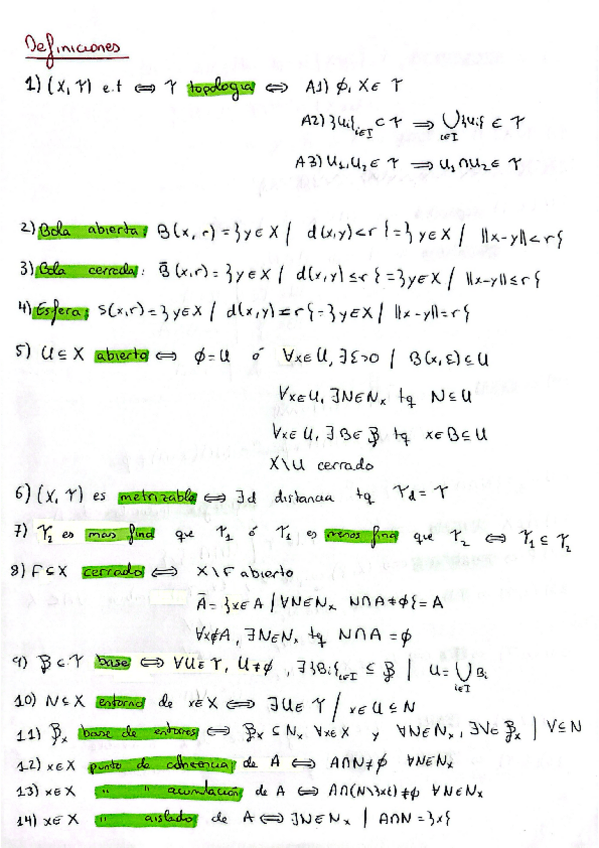 Definiciones
1) (X, τ) e.t ⟺ τ topología ⟺ A1) ϕ, X ∈ τ
A2) }Ui{i∈I ⊂ τ ⟹ ⋃i∈I }Ui{ ∈ τ
A3) U1, U2 ∈ τ ⟹ U1 ∩ U2 ∈ τ
2) Bola abierta: B(x, r) = }y ∈ X / d(x,y) < r{ = }y ∈ X / ||x-y|| < r{
3) Bola cerrada: B̄(x,r) = }y ∈ X / d(x,y) ≤ r{ = }y ∈ X / ||x-y|| ≤ r{
4) Esfera: S(x,r) = }y ∈ X / d(x,y) = r{ = }y ∈ X / ||x-y|| = r{
5) U ⊆ X abierto ⟺ ϕ = U ó ∀x ∈ U, ∃ε>0 / B(x, ε) ⊆ U
∀x ∈ U, ∃N ∈ Nx tq N ⊆ U
∀x ∈ U, ∃B ∈ ℬ tq x ∈ B ⊆ U
X\U cerrado
6) (X, τ) es metrizable ⟺ ∃d distancia tq τd = τ
7) τ2 es mas fina que τ1 ó τ1 es menos fina que τ2 ⟺ τ1 ⊆ τ2
8) F ⊆ X cerrado ⟺ X\F abierto
Ā = }x ∈ A / ∀N ∈ Nx N∩A ≠ ϕ{ = A
∀x ∉ A, ∃N ∈ Nx tq N∩A = ϕ
9) ℬ ⊂ τ base ⟺ ∀U ∈ τ, U ≠ ϕ, ∃}Bi{i∈I ⊆ ℬ | U = ⋃i∈I Bi
10) N ⊆ X entorno de x ∈ X ⟺ ∃U ∈ τ / x ∈ U ⊆ N
11) ℬx base de entornos ⟺ ℬx ⊆ Nx ∀x ∈ X y ∀N ∈ Nx, ∃V ∈ ℬx | V ⊆ N
12) x ∈ X punto de adherencia de A ⟺ A∩N ≠ ϕ ∀N ∈ Nx
13) x ∈ X " " acumulación de A ⟺ A∩(N\}x{) ≠ ϕ ∀N ∈ Nx
14) x ∈ X " aislado de A ⟺ ∃N ∈ Nx | A∩N = }x{